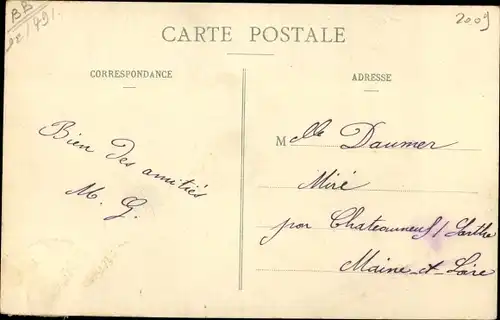 BB
2009
CARTE POSTALE
CORRESPONDANCE
ADRESSE
Bien des amitiés
M. G.
Mlle Daumer
Miré
par Chateauneuf / Sarthe
Maine-et-Loire